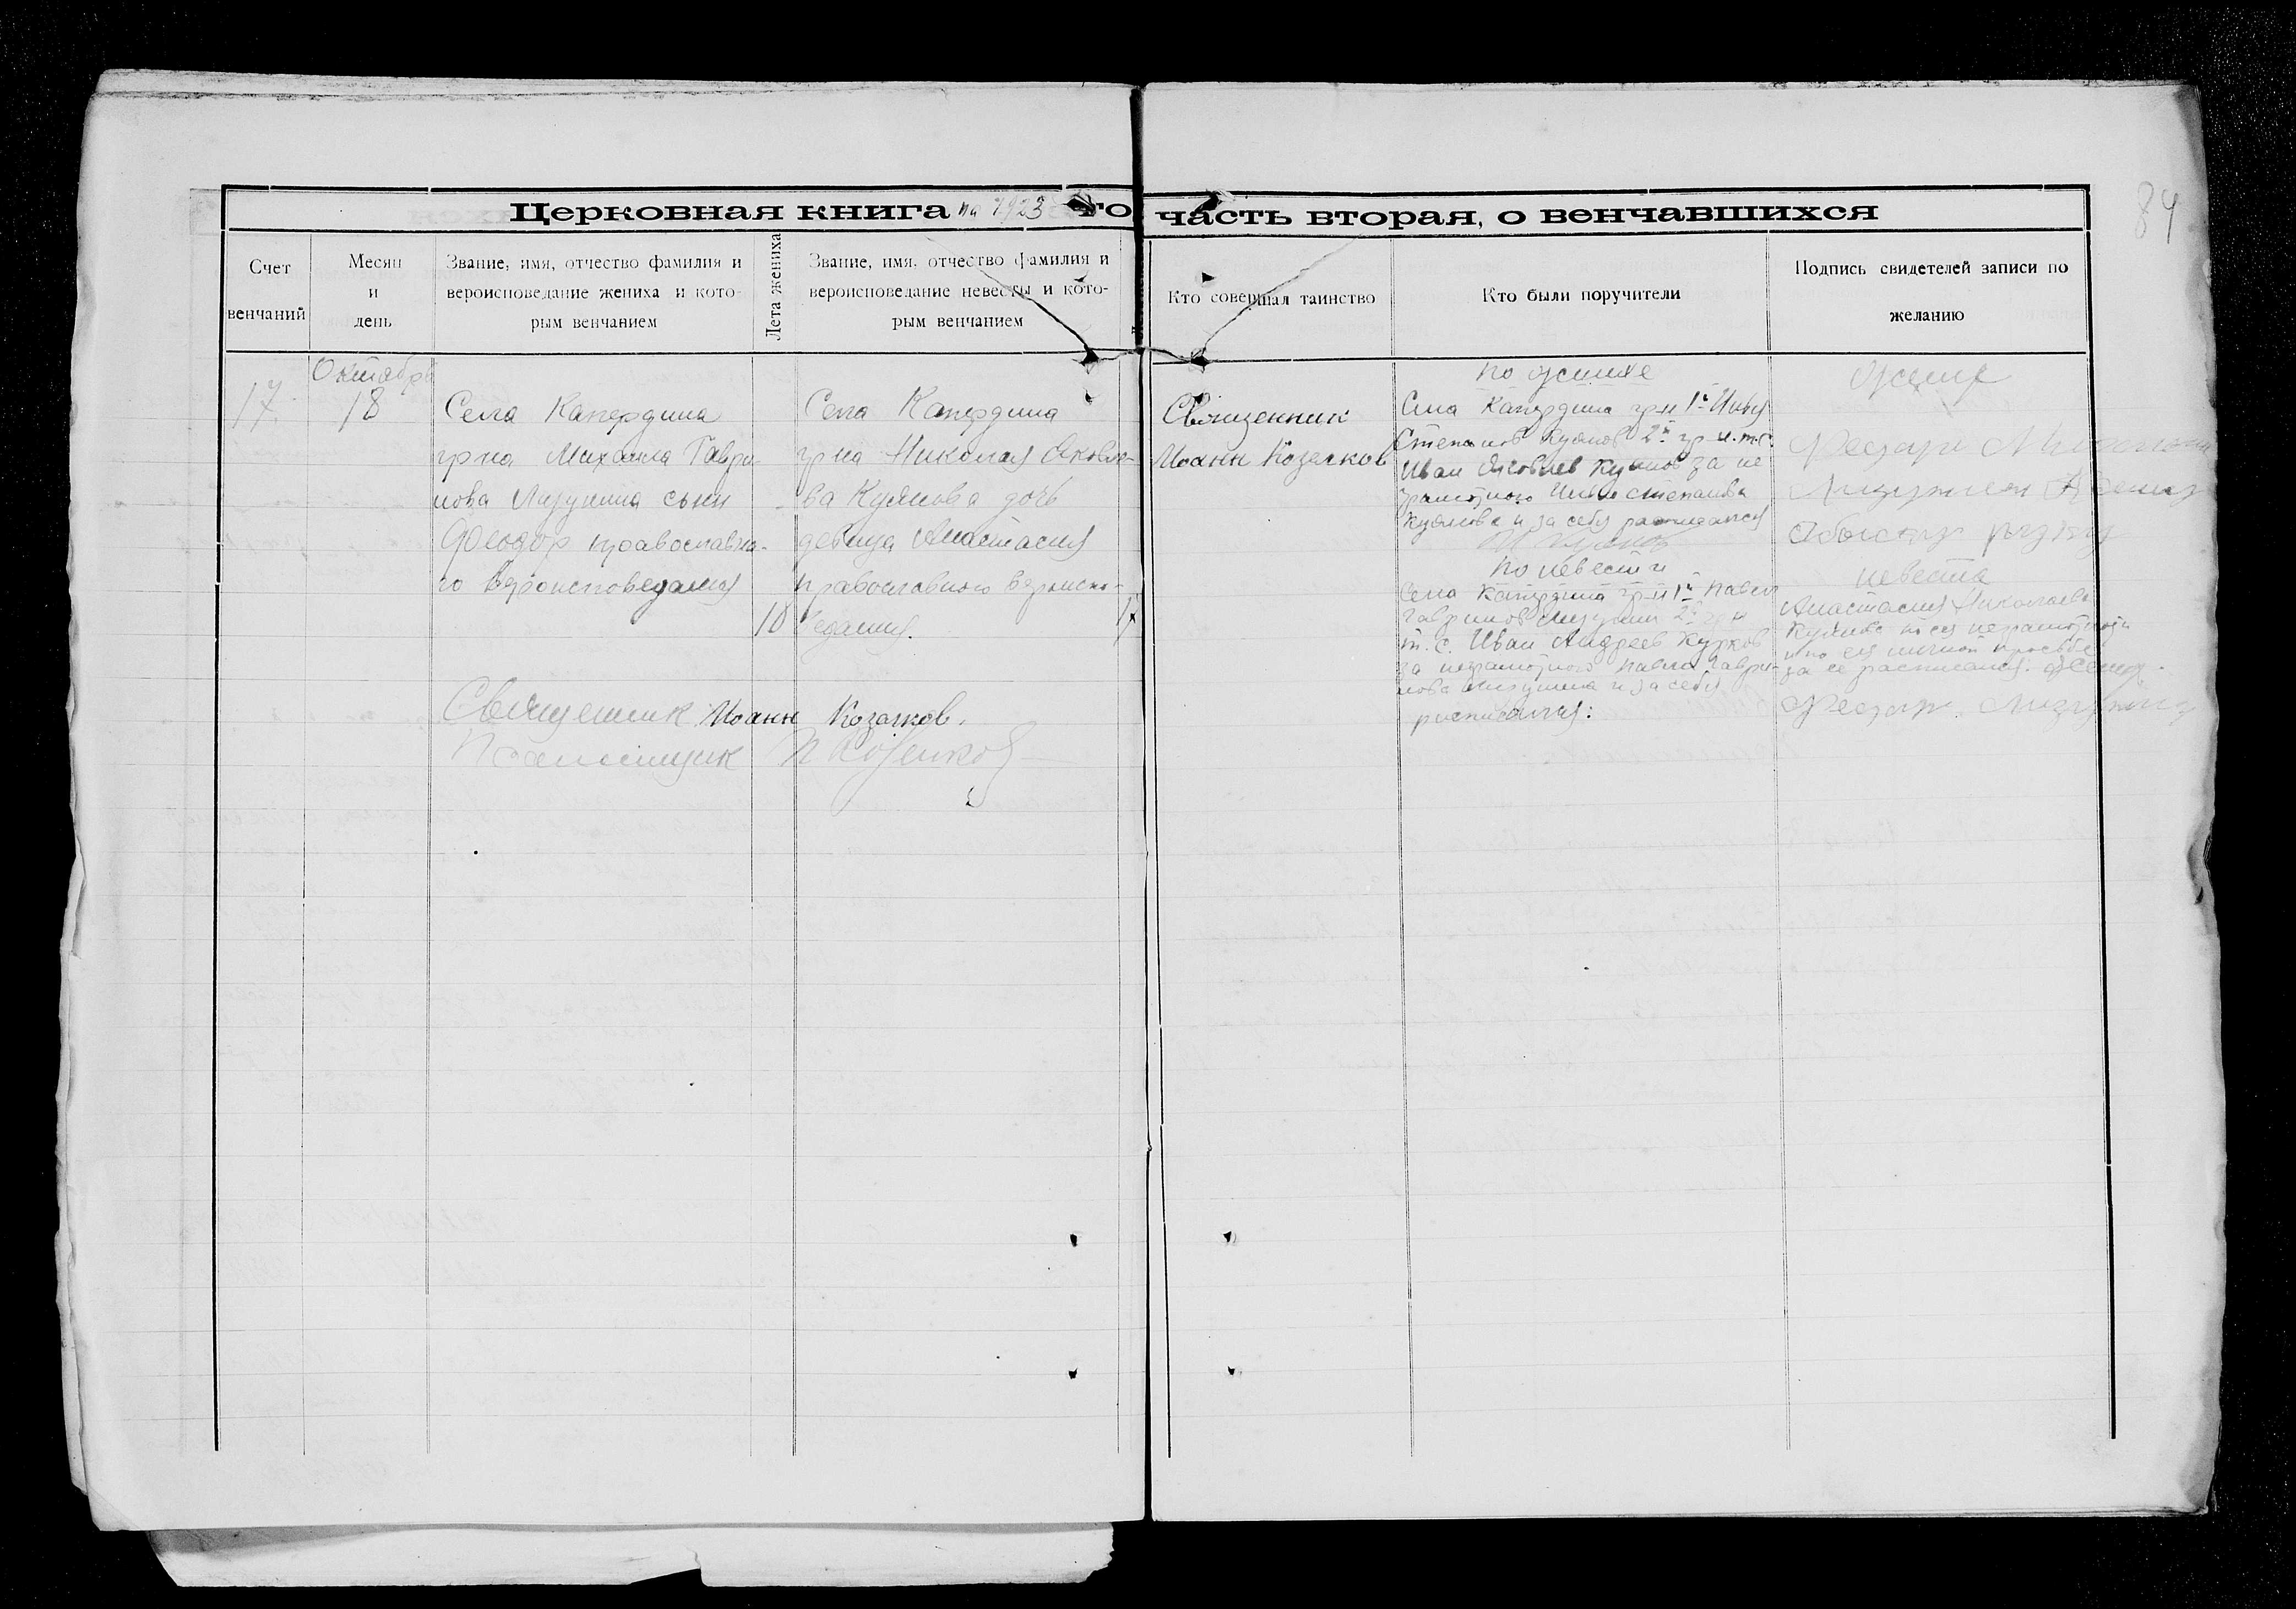 Церковная книга на 1923 го
часть вторая, о венчавшихся
84
Счет
венчаний
Месяц
и
день
Звание, имя, отчество фамилия и
вероисповедание жениха и кото-
рым венчанием
Лета жениха
Звание, имя, отчество фамилия и
вероисповедание невесты и кото-
рым венчанием
Кто совершал таинство
Кто были поручители
Подпись свидетелей записи по
желанию
17.
Октябрь
18
Села Капердина
гр на Михаила Гаври-
лова Лизунина сын
Феодор православна-
го вероисповедания
18
Села Капердина
гр на Николая Яковле-
ва Куянова дочь
девица Анастасия
православного вероиспо-
ведания.
17
Священник
Иоанн Козачков
по женихе
Села Капердина гр-н 1й Илья
Степанов Куянов 2й гр-н т.с.
Иван Яковлев Куянов за не
грамотного Илью Степанова
Куянова и за себя расписался
Куянов
по невесте
Села Капердина гр-н 1й Павел
Гаврилов Лизунин 2й гр-н
т. с. Иван Андреев Курков
за неграмотного Павла Гаври-
лова Лизунина и за себя
расписался:
жених
Федар
Лизунин
невеста
Анастасия Николаева
Куянова по ея неграмотности
и по ея личной просьбе
за ее расписался:
Федар Лизунин
Священник Иоанн Козачков.
Псаломщик